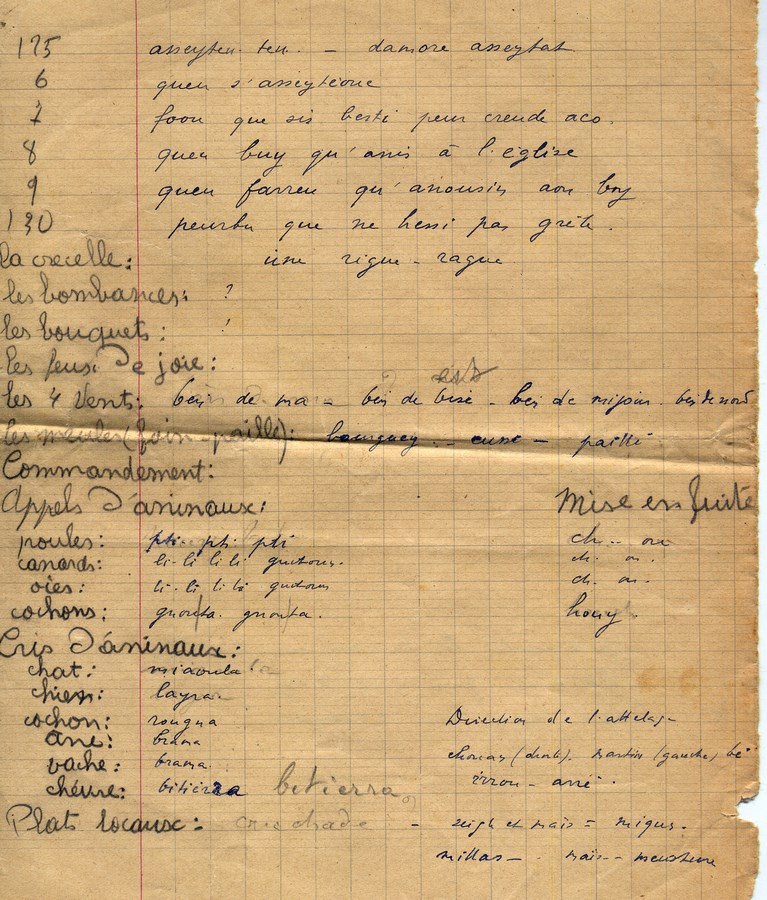 125 asseyten. ten. – damore asseytat
6 quen s'asseytéoue
7 foou que sis besti peur creude aco.
8 quen buy qu'anis à l'église
9 quen farreu qu'anousin aou boy
130 peurbu que ne hessi pas grèle.
la crecelle: une rigue-rague
les bombances: ?
les bouquets: !
les feux de joie:
les 4 vents: ben de ma – ben de bise - ben de mijour. ben de nord
est
les meules (foin-paille): – pailli
Commandement:
Appels d'animaux: Mise en fuite
poules: pti. pti pti ch... ou
canards: li-li li li ch. ou.
oies: li-li li li ch. ou.
cochons: gnouta. gnouta. houy
Cris d'animaux:
chat: miaoula
chien: layra
cochon: rougna Direction de l'attelage
âne: brama
vache: brama (droite). martin (gauche) bé
chèvre: bitièrra betierra arré.
Plats locaux: cruchade - seigle et maïs = migus.
millas – maïs –